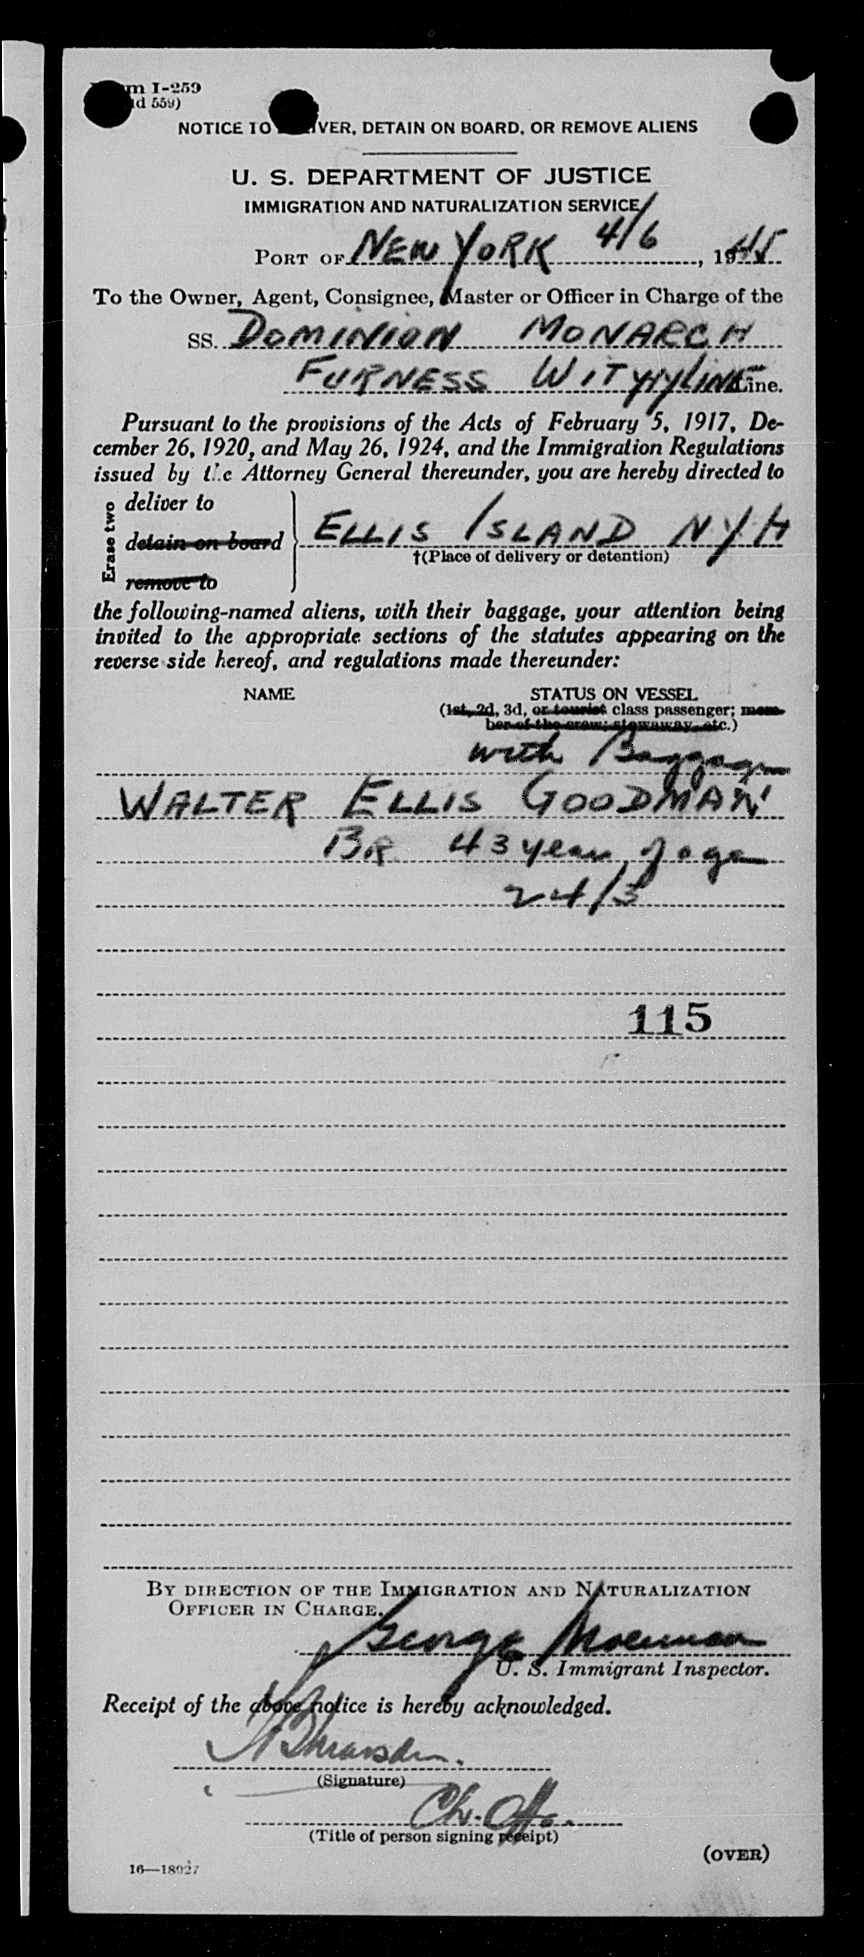 m I-259
ld 559)
NOTICE TO VER, DETAIN ON BOARD, OR REMOVE ALIENS
U. S. DEPARTMENT OF JUSTICE
IMMIGRATION AND NATURALIZATION SERVICE
PORT OF NEW YORK 4/6, 1945
To the Owner, Agent, Consignee, Master or Officer in Charge of the
SS. DOMINION MONARCH
FURNESS WITHYLINE Line.
Pursuant to the provisions of the Acts of February 5, 1917, De-
cember 26, 1920, and May 26, 1924, and the Immigration Regulations
issued by the Attorney General thereunder, you are hereby directed to
Erase two
deliver to
detain on board
remove to
ELLIS ISLAND NYH
†(Place of delivery or detention)
the following-named aliens, with their baggage, your attention being
invited to the appropriate sections of the statutes appearing on the
reverse side hereof, and regulations made thereunder:
NAME STATUS ON VESSEL
(1st, 2d, 3d, or tourist class passenger; mem-
ber of the crew; stowaway, etc.)
with Baggage
WALTER ELLIS GOODMAN
BR 43 years of age
24/3
115
BY DIRECTION OF THE IMMIGRATION AND NATURALIZATION
OFFICER IN CHARGE.
George
U. S. Immigrant Inspector.
Receipt of the above notice is hereby acknowledged.
(Signature)
Ch. Off.
(Title of person signing receipt)
(OVER)
16—18027